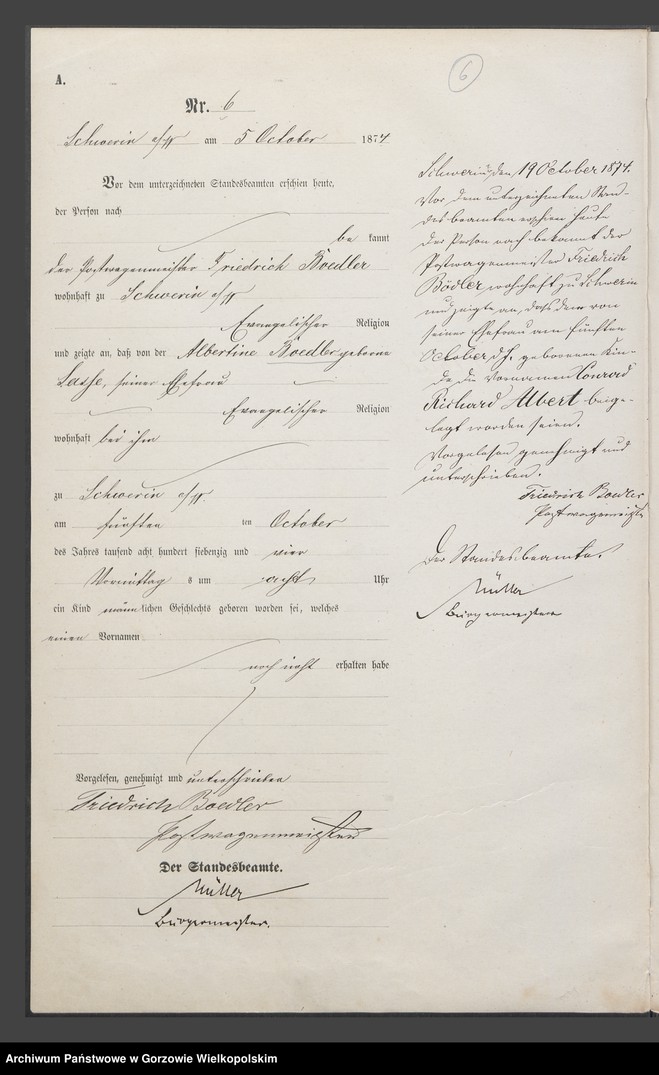 A.
6
Nr. 6
Schwerin a/W am 5 October 1874
Vor dem unterzeichneten Standesbeamten erschien heute,
der Person nach
be kannt
der Postwagenmeister Friedrich Boedler
wohnhaft zu Schwerin a/W
Evangelischer Religion
und zeigte an, daß von der Albertine Boedler geborne
seiner Ehefrau
Evangelischer Religion
wohnhaft bei ihm
zu Schwerin a/W
am fünften ten October
des Jahres tausend acht hundert siebenzig und vier
Vormittag s um acht Uhr
ein Kind männ lichen Geschlechts geboren worden sei, welches
einen Vornamen
noch nicht erhalten habe
Vorgelesen, genehmigt und unterschrieben
Friedrich Boedler
Postwagenmeister
Der Standesbeamte.
Müller
Bürgermeister.
Schwerin, den 19 October 1874.
Vor dem unterzeichneten Stan-
desbeamten erschien heute
der Person nach bekannt der
Postwagenmeister Friedrich
Bödler wohnhaft zu Schwerin
und zeigte an, dass dem von
seiner Ehefrau am fünften
October d. J. geborenen Kin-
de die Vornamen Conrad
Richard Albert beige-
legt worden seien.
Vorgelesen genehmigt und
unterschrieben.
Friedrich Boedler
Postwagenmeister
Der Standesbeamte.
Müller
Bürgermeister
Archiwum Państwowe w Gorzowie Wielkopolskim